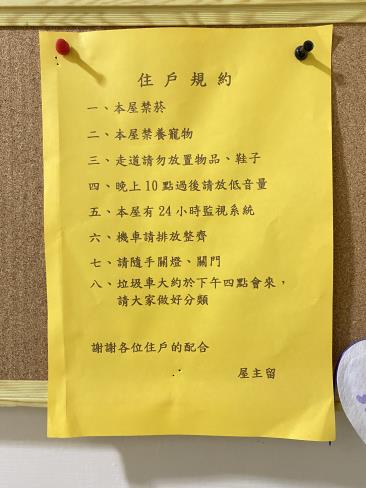 住戶規約
一、本屋禁菸
二、本屋禁養寵物
三、走道請勿放置物品、鞋子
四、晚上10點過後請放低音量
五、本屋有24小時監視系統
六、機車請排放整齊
七、請隨手關燈、關門
八、垃圾車大約於下午四點會來，
請大家做好分類
謝謝各位住戶的配合
屋主留